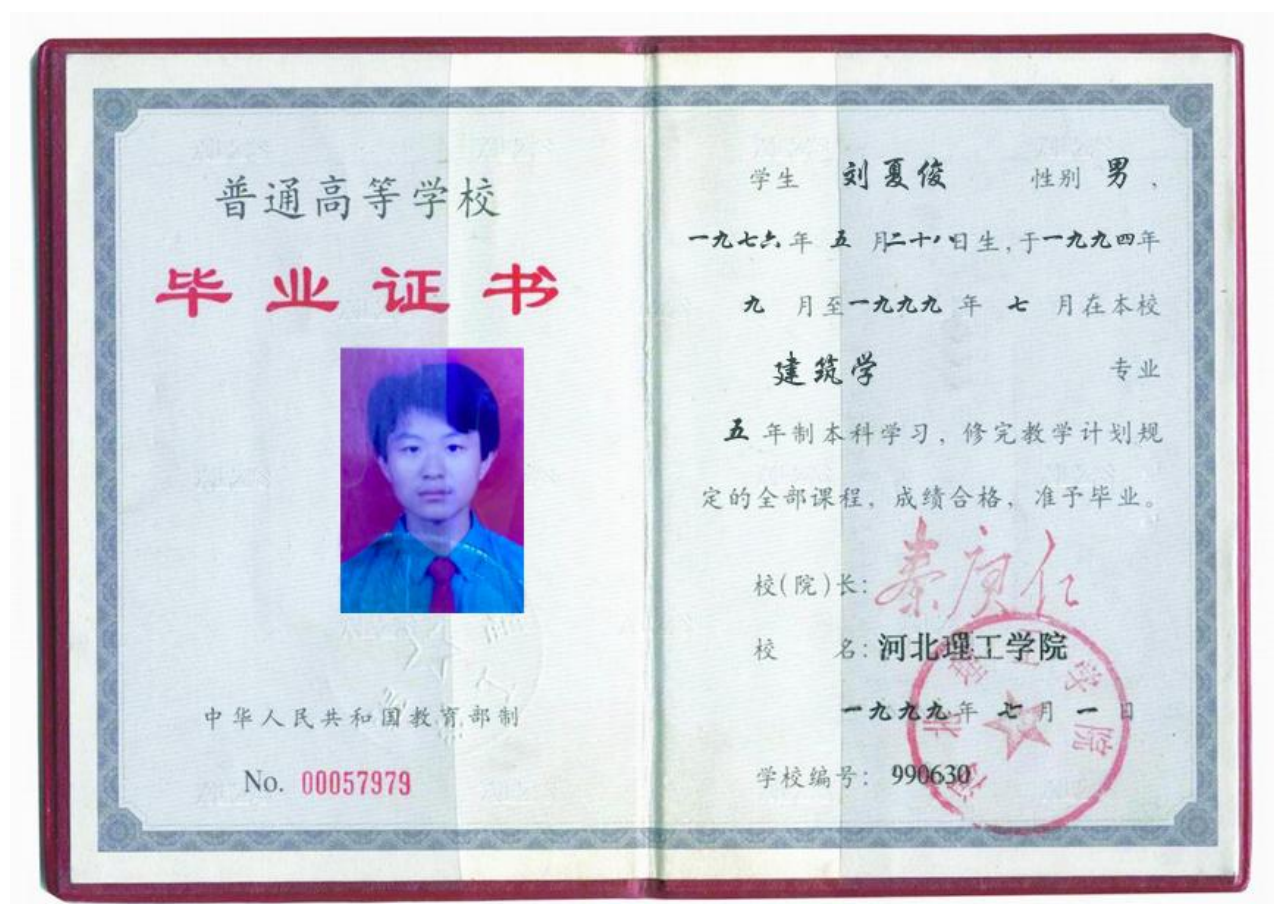 普通高等学校
毕业证书
中华人民共和国教育部制
No. 00057979
学生 刘夏俊 性别 男，
一九七六年 五 月二十八日生，于一九九四年
九 月至一九九九 年 七 月在本校
建筑学 专业
五 年制本科学习，修完教学计划规
定的全部课程，成绩合格，准予毕业。
校(院)长：
校 名：河北理工学院
一九九九年 七 月 一 日
学校编号：990630
河北理工学院